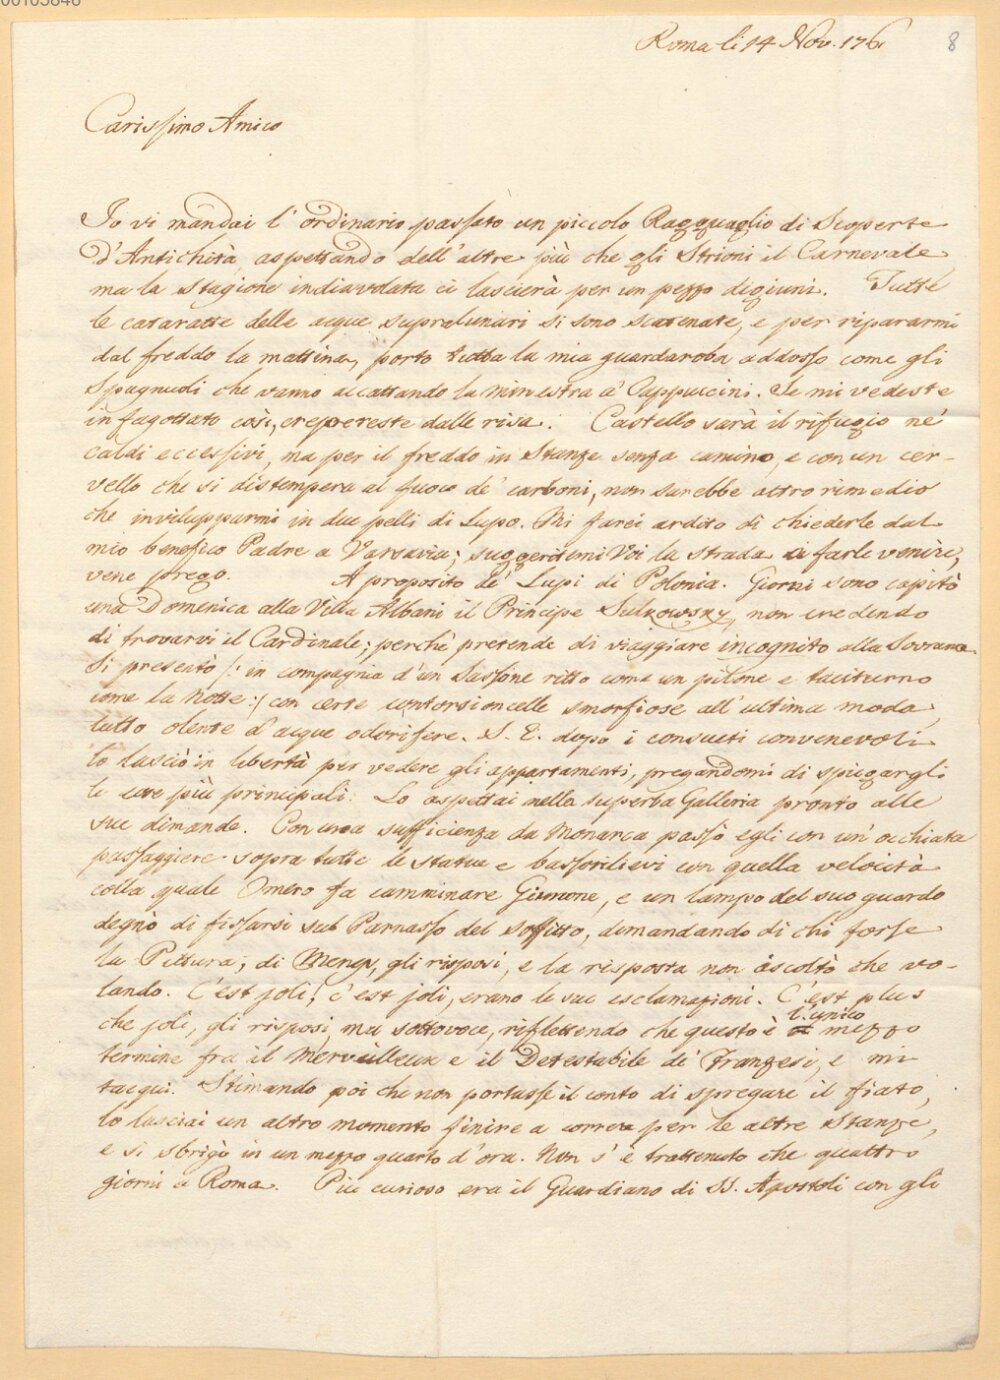 00105846
Roma li 14 Nov. 176
8
Carissimo Amico
Io vi mandai l' ordinario passato un piccolo Ragguaglio di Scoperte
d'Antichità, aspettando dell' altre più che gli Strioni il Carnevale
ma la Stagione indiavolata ci lascierà per un pezzo digiuni. Tutte
le cataratte delle acque supralunari si sono scatenate, e per ripararmi
dal freddo la mattina, porto tutta la mia guardaroba addosso come gli
Spagnuoli che vanno accattando la minestra a' Cappuccini. Se mi vedeste
infagottato così, crepereste dalle risa. Castello sarà il rifugio ne'
caldi eccessivi, ma per il freddo in Stanze senza camino, e con un cer-
vello che si distempera al fuoco de' carboni, non sarebbe altro rimedio
che invilupparmi in due pelli di Lupo. Mi farei ardito di chiederle dal
mio benefico Padre a Varsavia; suggeritemi Voi la strada di farle venire,
vene prego. A proposito de' Lupi di Polonia. Giorni sono capitò
una Domenica alla Villa Albani il Principe Sulkowsky, non credendo
di trovarvi il Cardinale; perchè pretende di viaggiare incognito alla Sovrana.
Si presentò /: in compagnia d'un Sassone ritto come un pilone e taciturno
come la Notte :/ con certe contorsioncelle smorfiose all' ultima moda,
tutto olente d'acque odorifere. S. E. dopo i consueti convenevoli
lo lasciò in libertà per vedere gli appartamenti, pregandomi di spiegargli
le cose più principali. Lo aspettai nella superba Galleria pronto alle
sue dimande. Con una sufficienza da Monarca passò egli con un' occhiata
passaggiere sopra tutte le statue e bassirilievi con quella velocità
colla quale Omero fa camminare Giunone, e un lampo del suo guardo
degnò di fissarsi sul Parnasso del soffitto, dimandando di chi fosse
la Pittura; di Mengs, gli risposi, e la risposta non ascoltò che vo-
lando. C'est joli, c'est joli, erano le sue esclamazioni. C'est plus
che joli, gli risposi, ma sottovoce, riflettendo che questo è l'unico mezzo
termine fra il Merveilleux e il Detestabile de' Franzesi, e mi
tacqui. Stimando poi che non portasse il conto di spregare il fiato,
lo lasciai un altro momento finire a correre per le altre Stanze,
e si sbrigò in un mezzo quarto d'ora. Non s' è trattenuto che quattro
giorni a Roma. Più curioso era il Guardiano di SS. Apostoli con gli